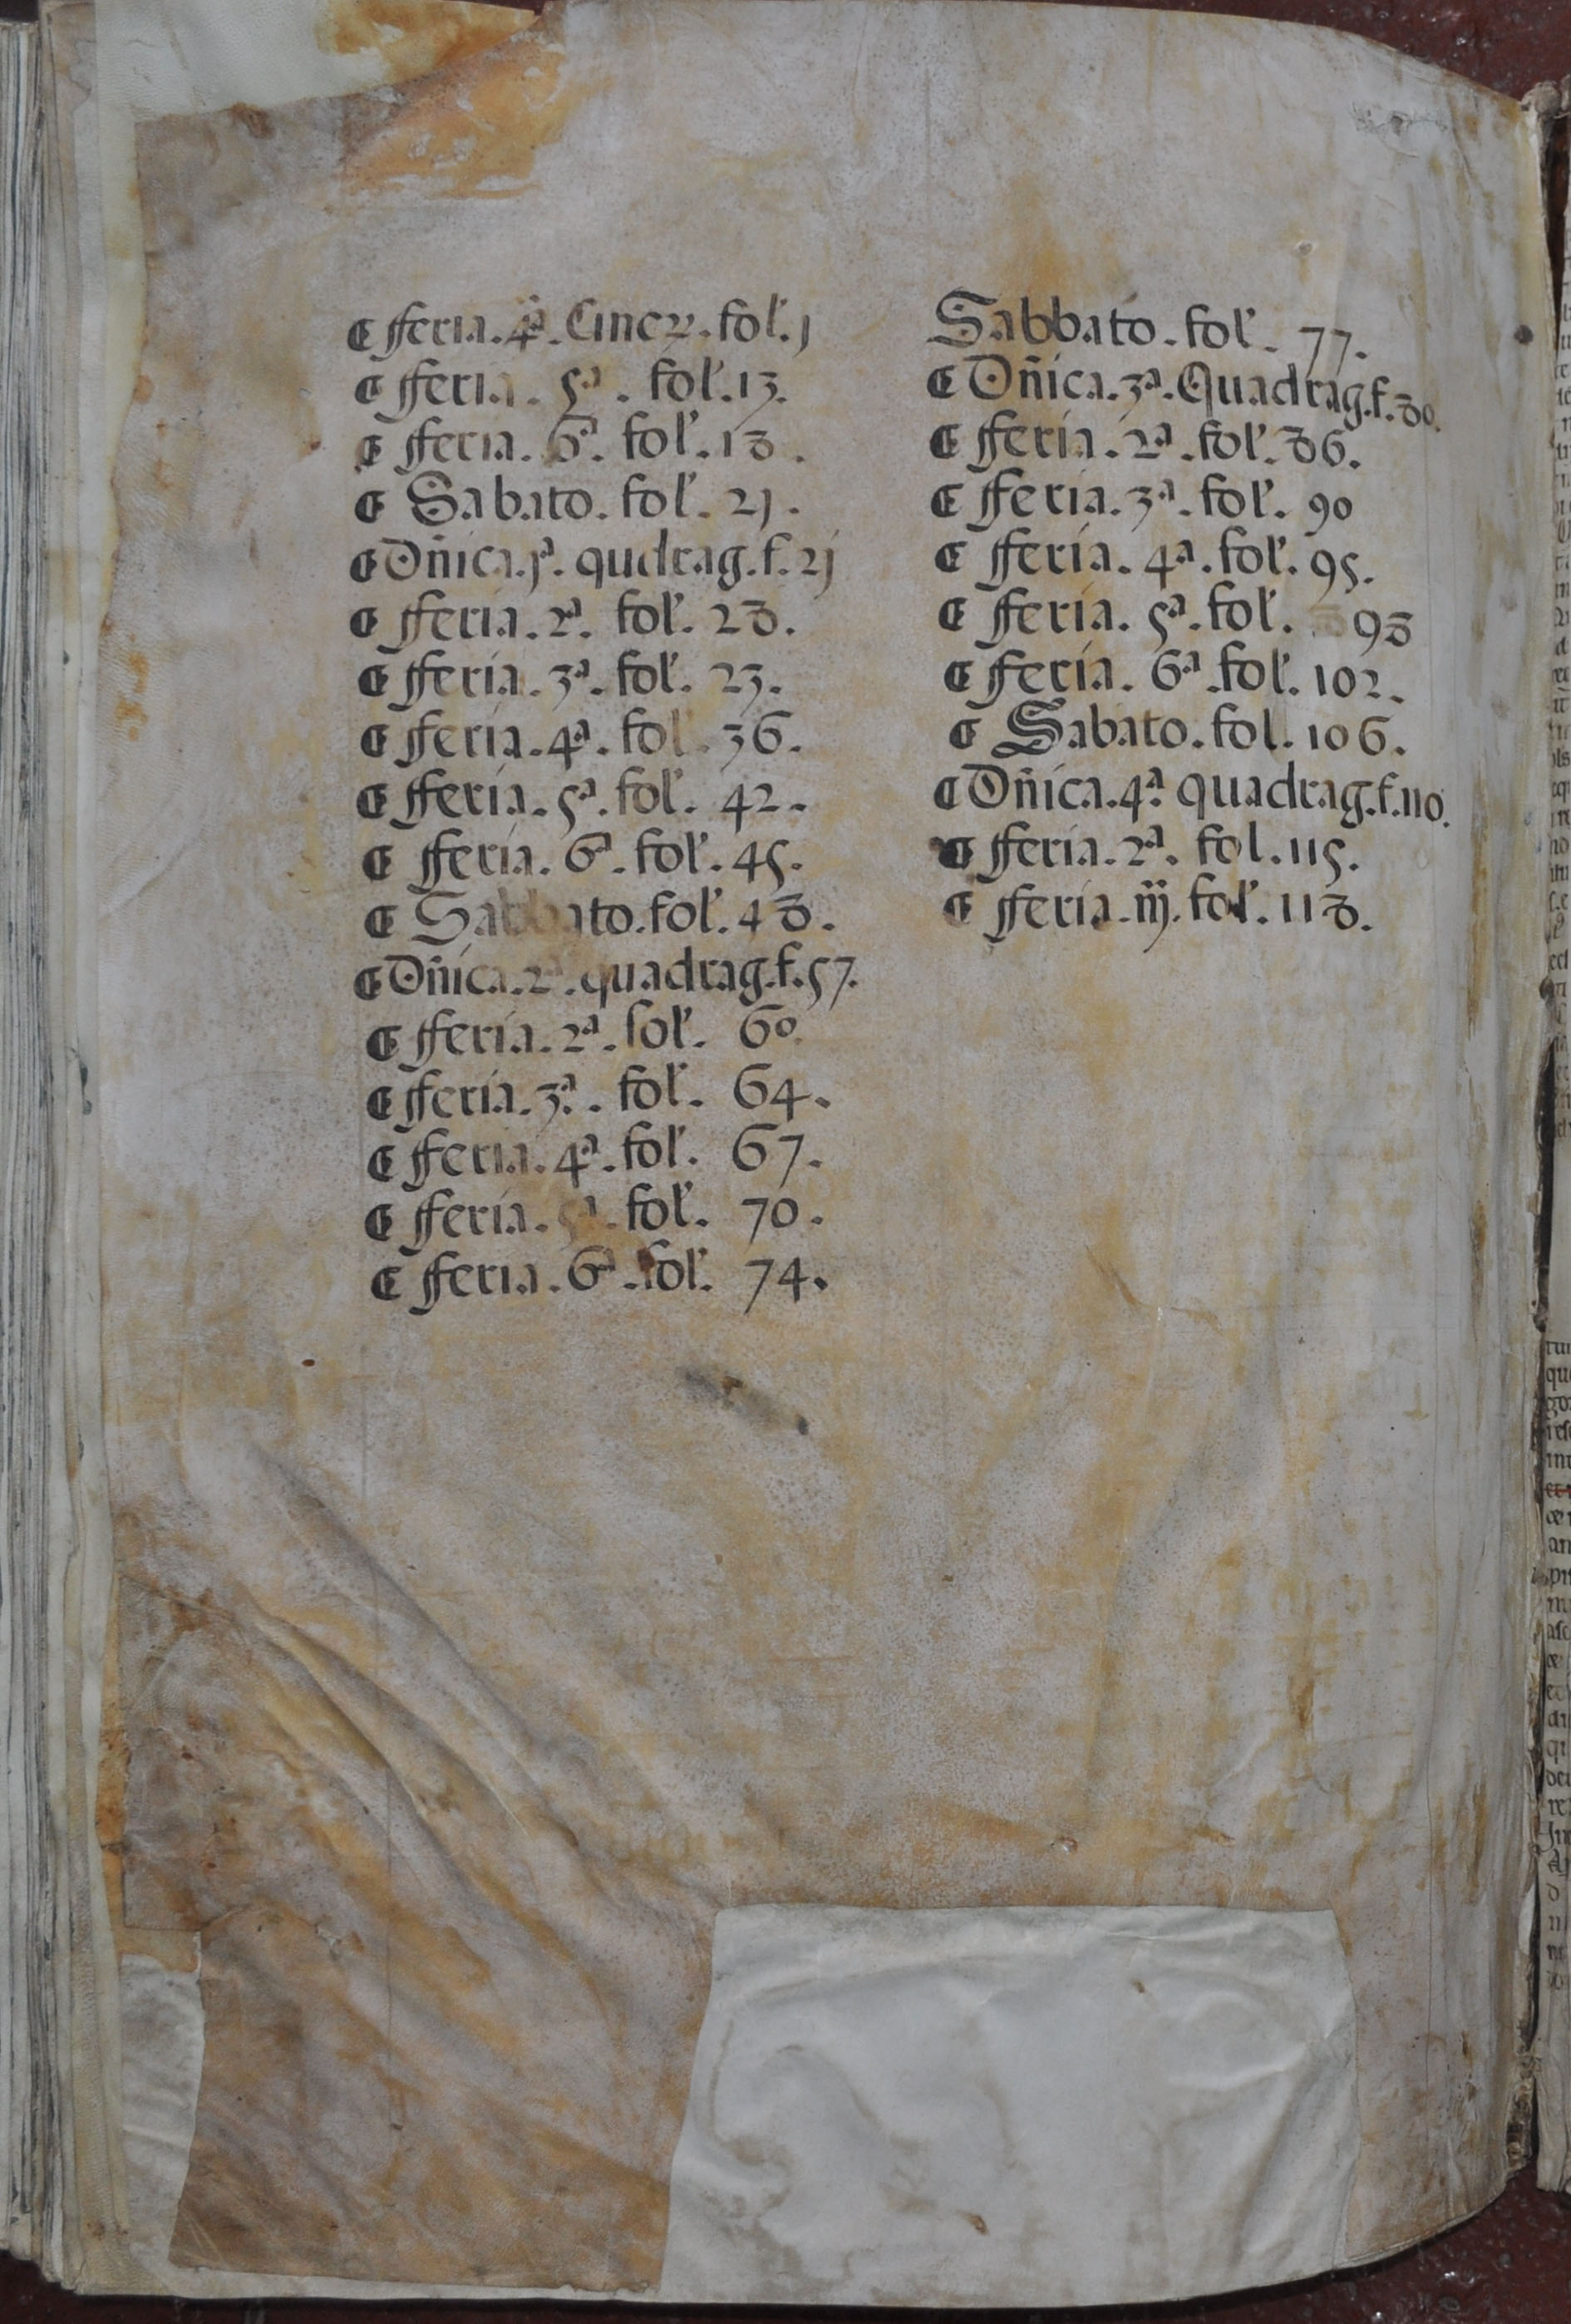 ¶ fferia. 4ª. Cinerꝝ. fol̕. j
¶ fferia. 5ª. fol̕. 13.
¶ fferia. 6ª. fol̕. 18.
¶ Sabato. fol̕. 21.
¶ Dñica. jª. qudrag. f. 2j
¶ fferia. 2ª. fol̕. 28.
¶ fferia. 3ª. fol̕. 23.
¶ fferia. 4ª. fol̕. 36.
¶ fferia. 5ª. fol̕. 42.
¶ fferia. 6ª. fol̕. 45.
¶ Sabbato. fol̕. 48.
¶ Dñica. 2ª. quadrag. f. 57.
¶ fferia. 2ª. fol̕. 60.
¶ fferia. 3ª. fol̕. 64.
¶ fferia. 4ª. fol̕. 67.
¶ fferia. 5ª. fol̕. 70.
¶ fferia. 6ª. fol̕. 74.
Sabbato. fol̕. 77.
¶ Dñica. 3ª. Quadrag. f. 80.
¶ fferia. 2ª. fol̕. 86.
¶ fferia. 3ª. fol̕. 90
¶ fferia. 4ª. fol̕. 95.
¶ fferia. 5ª. fol̕. 98
¶ fferia. 6ª. fol̕. 102.
¶ Sabato. fol. 106.
¶ Dñica. 4ª. quadrag. f. 110.
¶ fferia. 2ª. fol. 115.
¶ fferia. iij. fol̕. 118.